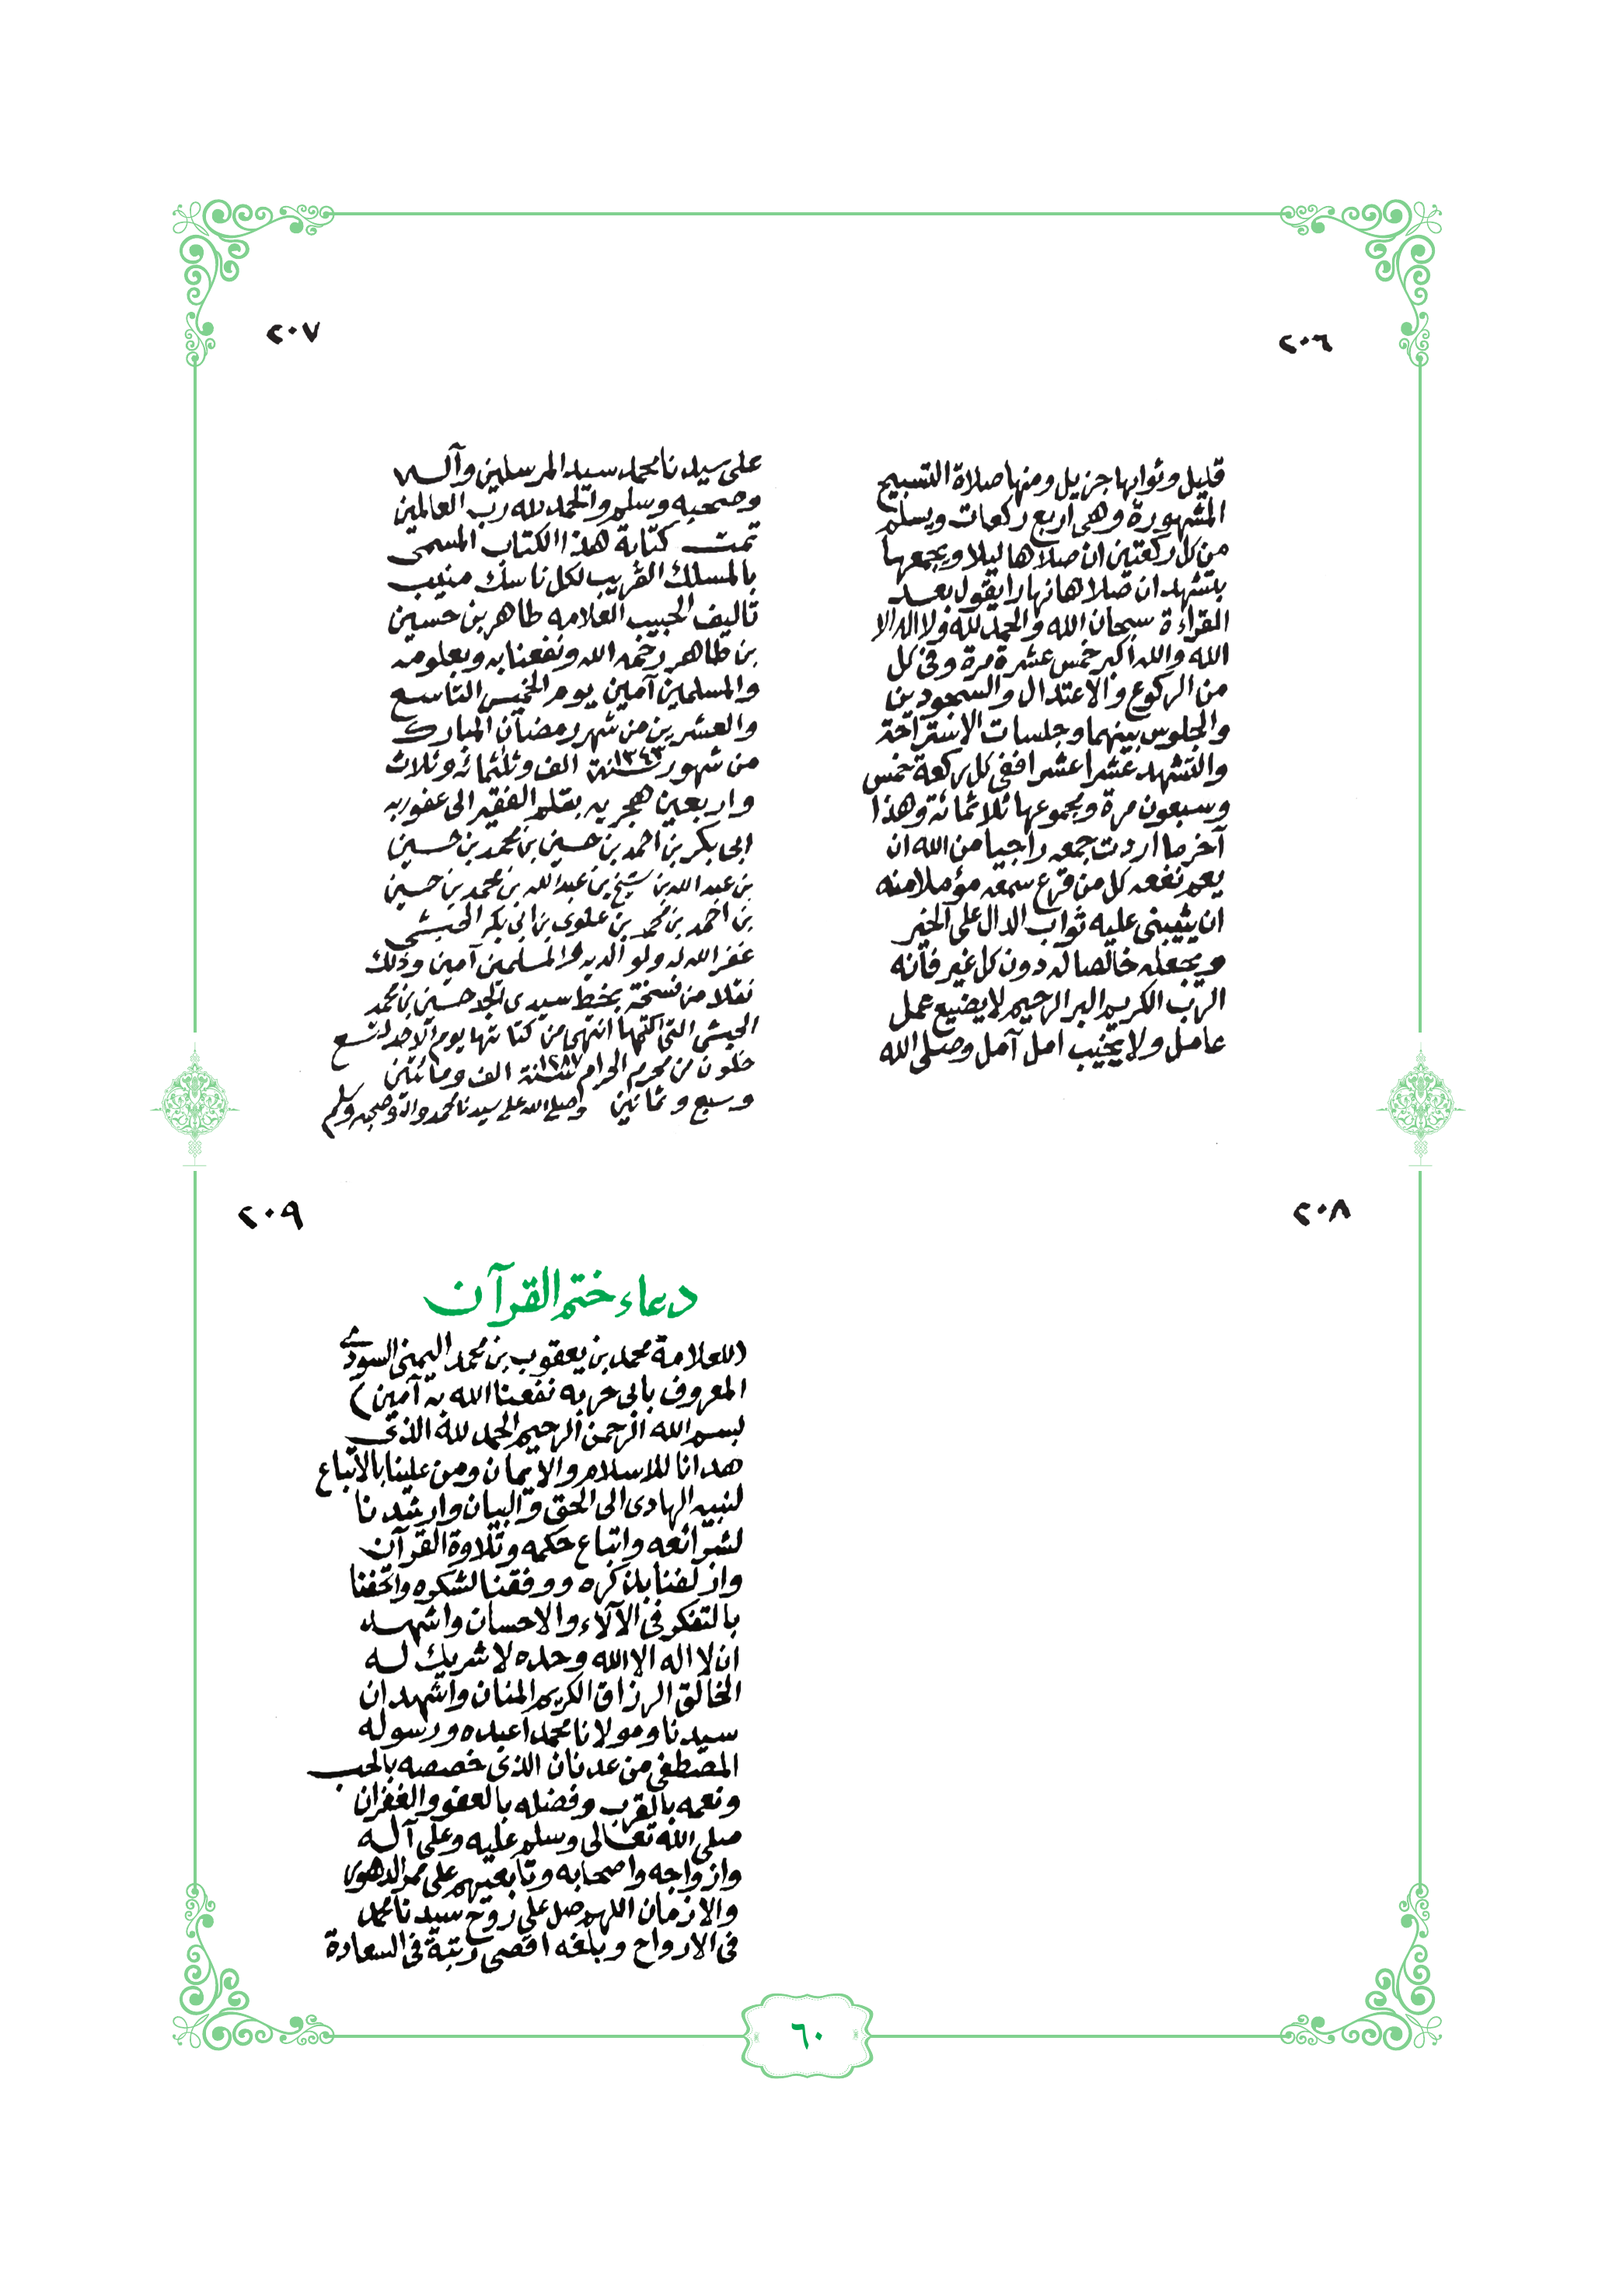 ٢٠٦
قليل وثوابها جزيل ومنها صلاة التسبيح
المشهورة وهى اربع ركعات ويسلم
من كل ركعتين ان صلاها ليلا ويجمعها
بتشهد ان صلاها نهارا يقول بعد
القراءة سبحان الله والحمد لله ولا اله الا
الله والله اكبر خمس عشرة مرة وفى كل
من الركوع والاعتدال والسجودين
والجلوس بينهما وجلسات الاستراحة
والتشهد عشرا عشرا ففى كل ركعة خمس
وسبعون مرة ومجموعها ثلاثمائة وهذا
آخر ما اردت جمعه راجيا من الله ان
يعم نفعه كل من قرع سمعه مؤملا منه
ان يثيبنى عليه ثواب الدال على الخير
ويجعله خالصا له دون كل غير فانه
الرب الكريم البر الرحيم لا يضيع عمل
عامل ولا يخيب امل آمل وصلى الله
٢٠٧
على سيدنا محمد سيد المرسلين وآله
وصحبه وسلم والحمد لله رب العالمين
تمت كتابة هذا الكتاب المسمى
بالمسلك القريب لكل ناسك منيب
تاليف الحبيب العلامه طاهر بن حسين
بن طاهر رحمه الله ونفعنا به وبعلومه
والمسلمين آمين يوم الخميس التاسع
والعشرين من شهر رمضان المبارك
من شهور سنة ١٣٤٣ الف وثلثمائه وثلاث
واربعين هجريه بقلم الفقير الى عفو ربه
ابى بكر بن احمد بن حسين بن محمد بن حسين
بن عبد الله بن شيخ بن عبد الله بن محمد بن حسين
بن احمد بن محمد بن علوى بن ابى بكر الحبشى
غفر الله له ولوالديه والمسلمين آمين وذلك
نقلا من نسخة بخط سيدى الجد حسين بن محمد
الحبشى التى اكتتبها انتهى من كتابتها يوم الاحد لتسع
خلون من محرم الحرام سنة ١٢٨٧ الف ومائتين
وسبع وثمانين وصلى الله على سيدنا محمد واله وصحبه وسلم
٢٠٨
٢٠٩
دعاء ختم القرآن
(للعلامة محمد بن يعقوب بن محمد اليمنى السودى
المعروف بابى حربه نفعنا الله به آمين)
بسم الله الرحمن الرحيم الحمد لله الذى
هدانا للاسلام والايمان ومن علينا بالاتباع
لنبيه الهادى الى الحق والبيان وارشدنا
لشرائعه واتباع حكمه وتلاوة القرآن
وازلفنا بذكره ووفقنا لشكره واتحفنا
بالتفكر فى الآلاء والاحسان واشهد
ان لا اله الا الله وحده لا شريك له
الخالق الرزاق الكريم المنان واشهد ان
سيدنا ومولانا محمدا عبده ورسوله
المصطفى من عدنان الذى خصصه بالحب
ونعمه بالقرب وفضله بالعفو والغفران
صلى الله تعالى وسلم عليه وعلى آله
وازواجه واصحابه وتابعيهم على ممر الدهور
والازمان اللهم صل على روح سيدنا محمد
فى الارواح وبلغه اقصى رتبة فى السعادة
٦٠